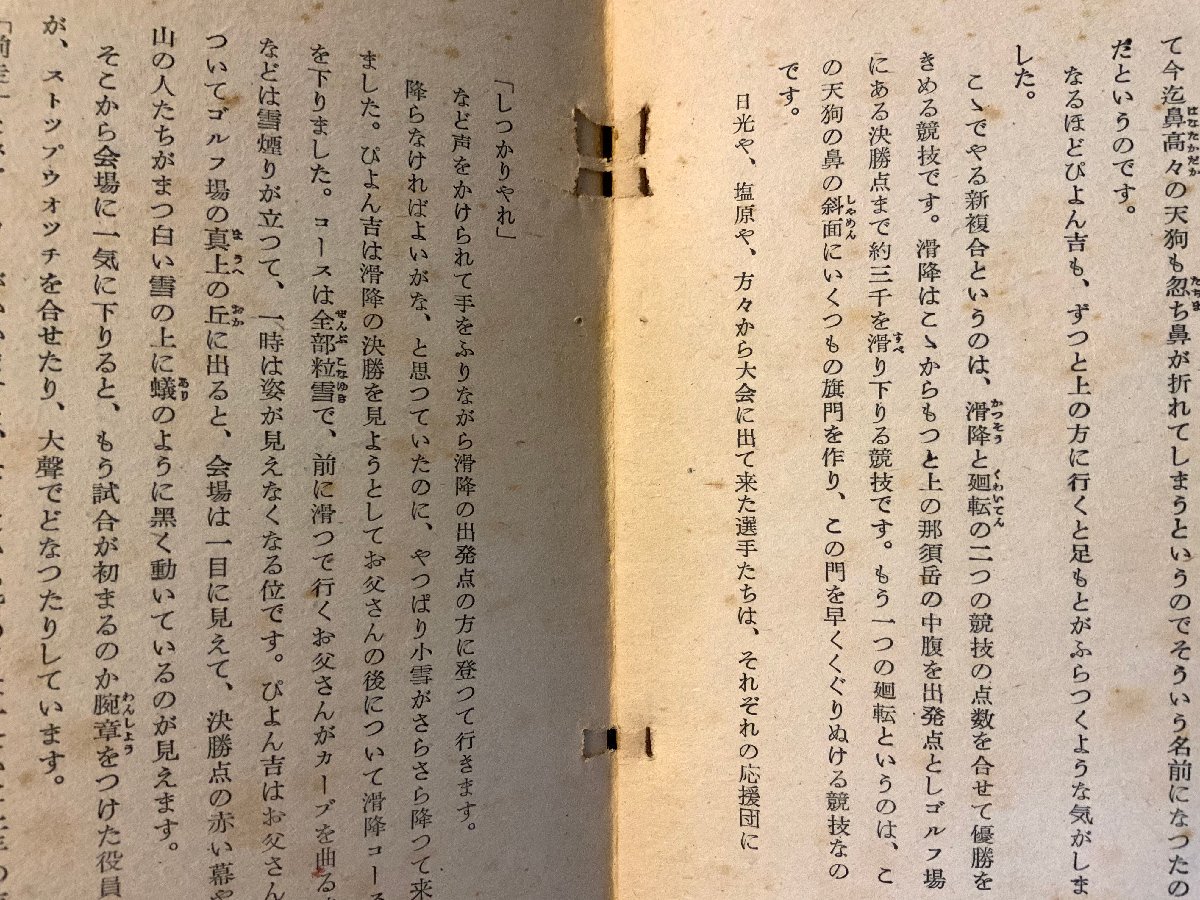 て今迄鼻高々の天狗も忽ち鼻が折れてしまうというのでそういう名前になつたの
だというのです。
なるほどぴよん吉も、ずつと上の方に行くと足もとがふらつくような気がしま
した。
こゝでやる新複合というのは、滑降と廻転の二つの競技の点数を合せて優勝を
きめる競技です。滑降はこゝからもつと上の那須岳の中腹を出発点としゴルフ場
にある決勝点まで約三千を滑り下りる競技です。もう一つの廻転というのは、こ
の天狗の鼻の斜面にいくつもの旗門を作り、この門を早くくぐりぬける競技なの
です。
日光や、塩原や、方々から大会に出て来た選手たちは、それぞれの応援団に
「しつかりやれ」
など声をかけられて手をふりながら滑降の出発点の方に登つて行きます。
降らなければよいがな、と思つていたのに、やつぱり小雪がさらさら降つて来
ました。ぴよん吉は滑降の決勝を見ようとしてお父さんの後について滑降コー
を下りました。コースは全部粒雪で、前に滑つて行くお父さんがカーブを曲る
などは雪煙りが立つて、一時は姿が見えなくなる位です。ぴよん吉はお父さん
ついてゴルフ場の真上の丘に出ると、会場は一目に見えて、決勝点の赤い幕や
山の人たちがまつ白い雪の上に蟻のように黒く動いているのが見えます。
そこから会場に一気に下りると、もう試合が初まるのか腕章をつけた役員
が、ストツプウオツチを合せたり、大聲でどなつたりしています。